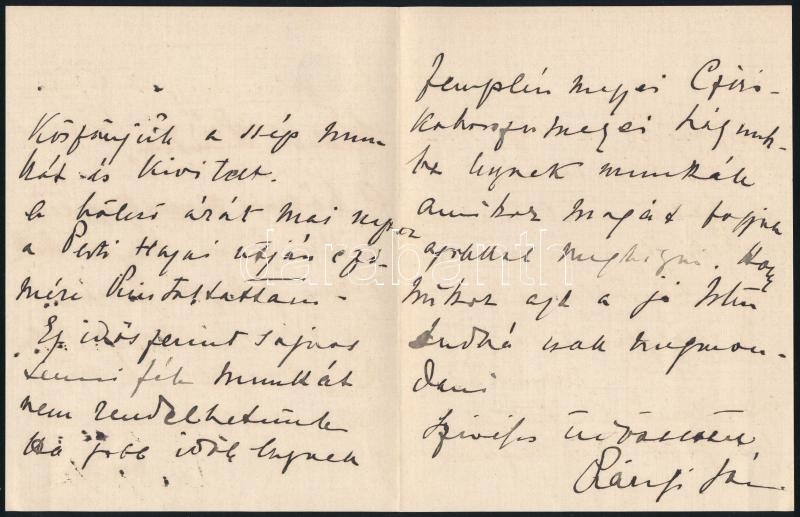 Köszönjük a szép mun-
kát és kivitelt.
A bölcső árát mai napon
a Pesti Hazai útján czi-
mére
Ez idő szerint sajnos
semmi féle munkát
nem rendelhetünk
ha jobb idők lesznek
Zemplén megyei Cziró-
kahosszumezei házunk-
ba lesznek munkák
amikor magát fogjuk
azokkal megbizni. Hogy
mikor azt a jó Isten
tudná csak megmon-
dani
Szívélyes üdvözlettel
darabanth